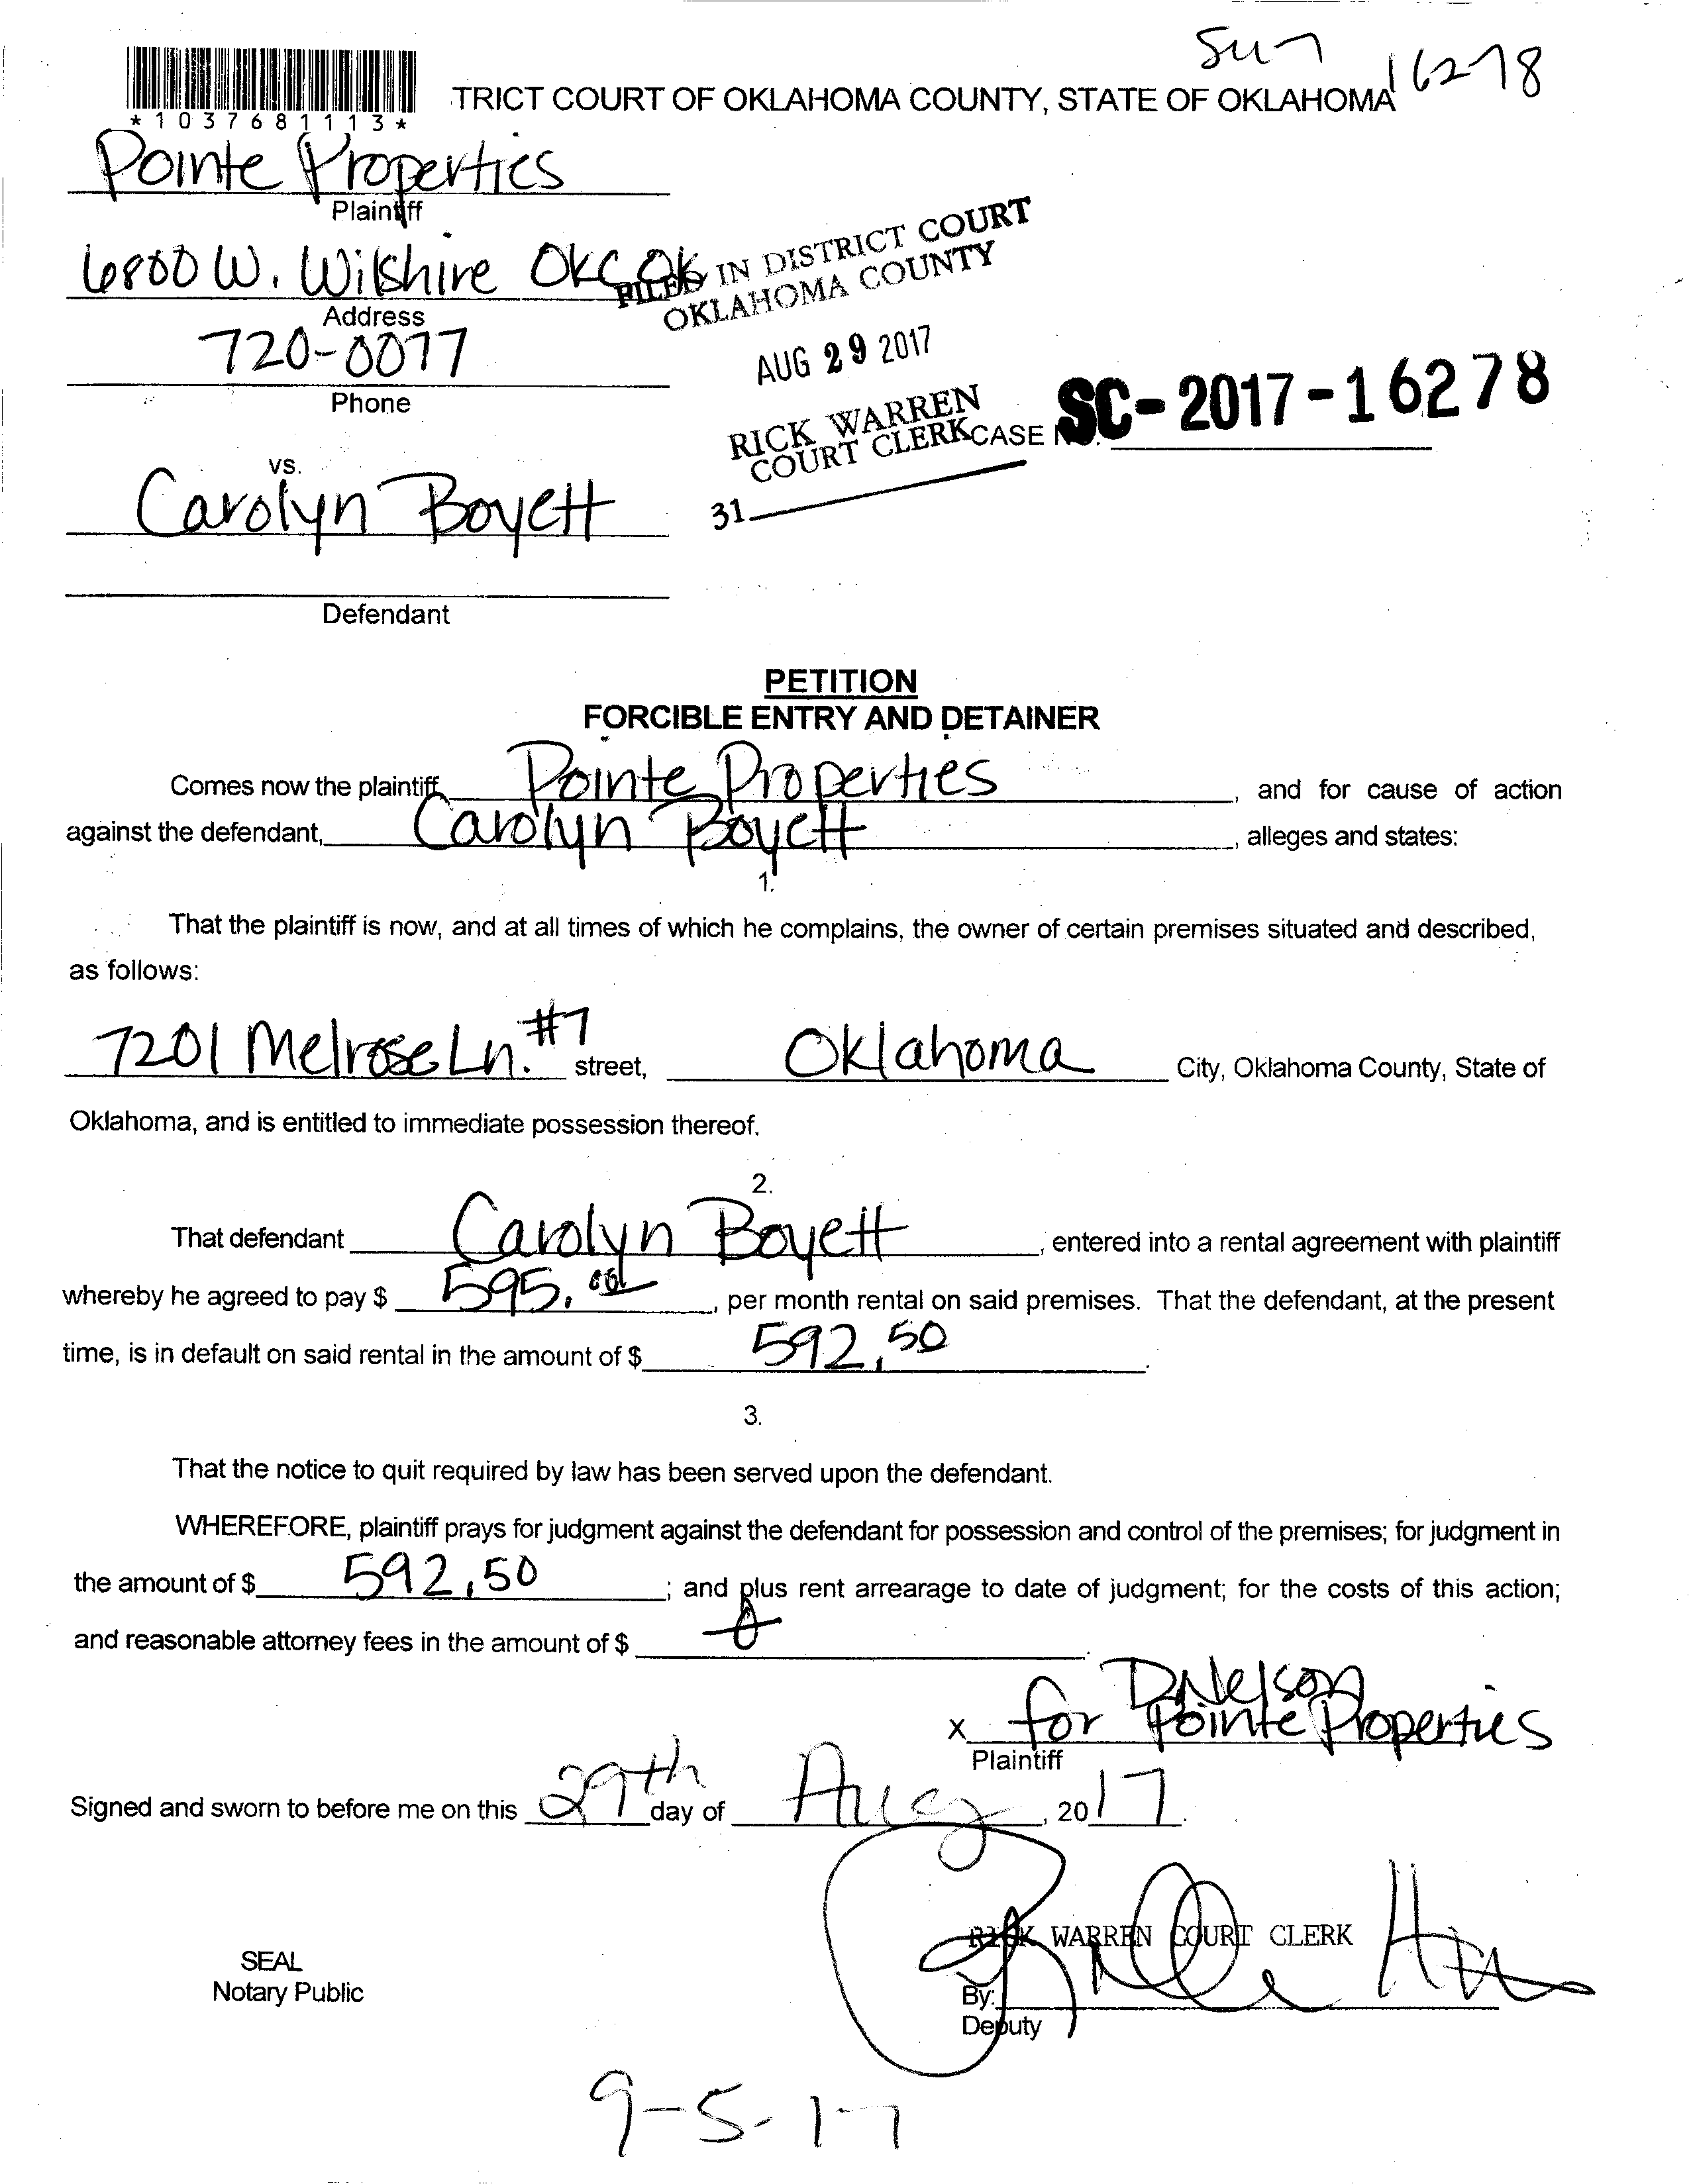 Sun 16278
TRICT COURT OF OKLAHOMA COUNTY, STATE OF OKLAHOMA
*1037681113*
Pointe Properties
Plaintiff
6800 W. Wilshire OKC OK
Address
720-0077
Phone
FILED IN DISTRICT COURT
OKLAHOMA COUNTY
AUG 29 2017
RICK WARREN
COURT CLERK
31
CASE NO. SC-2017-16278
vs.
Carolyn Boyett
Defendant
PETITION
FORCIBLE ENTRY AND DETAINER
Comes now the plaintiff Pointe Properties, and for cause of action
against the defendant, Carolyn Boyett, alleges and states:
1.
That the plaintiff is now, and at all times of which he complains, the owner of certain premises situated and described,
as follows:
7201 Melrose Ln. #7 street, Oklahoma City, Oklahoma County, State of
Oklahoma, and is entitled to immediate possession thereof.
2.
That defendant Carolyn Boyett, entered into a rental agreement with plaintiff
whereby he agreed to pay $ 595.00, per month rental on said premises. That the defendant, at the present
time, is in default on said rental in the amount of $ 592.50.
3.
That the notice to quit required by law has been served upon the defendant.
WHEREFORE, plaintiff prays for judgment against the defendant for possession and control of the premises; for judgment in
the amount of $ 592.50; and plus rent arrearage to date of judgment; for the costs of this action;
and reasonable attorney fees in the amount of $ 0.
DNelson
x for Pointe Properties
Plaintiff
Signed and sworn to before me on this 29th day of Aug, 2017.
RICK WARREN COURT CLERK
SEAL
Notary Public
By:
Deputy
9-5-17